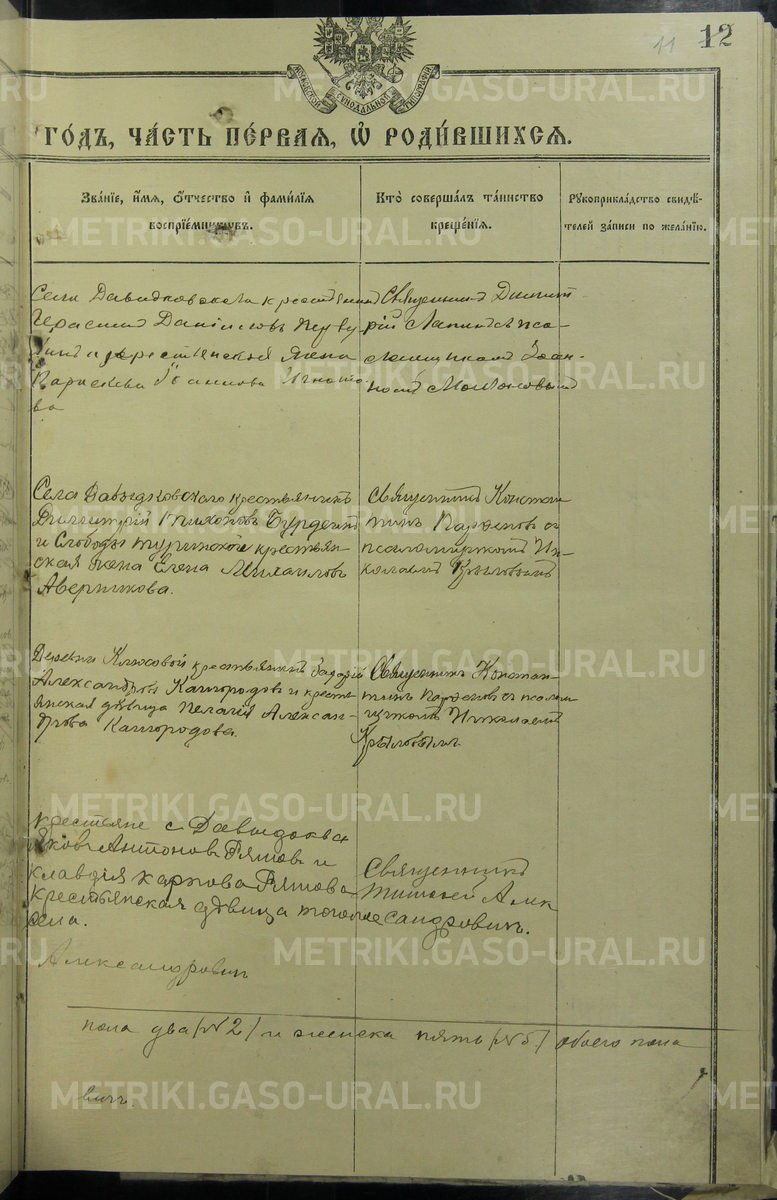 11 12
МОСКОВСКОЙ СѴНОДАЛЬНОЙ ТИПОГРАФІИ
ГО́ДЪ, ЧА́СТЬ ПЕ́РВАЯ, Ѡ҆ РОДИ́ВШИХСЯ.
Зва́нїе, и҆́мя, ѻ҆́тчество и҆ фами́лїя
воспрїе́мниковъ.
Кто̀ соверша́лъ та́инство
креще́нїя.
Рукоприкла́дство свидѣ́-
телей за́писи по жела́нїю.
Села Давыдковскаго крестьянинъ
Герасимъ Даніиловъ Перву-
и крестьянская жена
Іоаннова Игнато-
ва
Священникъ Димит
рій Лапинъ съ пса-
ломщикомъ Іоан-
номъ
Села Давыдковскаго крестьянинъ
Димитрій Тихоновъ Бурдинъ
и Слободы Туринской крестьян-
ская жена Елена Михаилова
Аверникова.
Священникъ Констан
тинъ Парѳеновъ съ
псаломщикомъ Ни-
колаемъ Крыловымъ
Деревни Клюсовой крестьянинъ
Александровъ Кайгородовъ и кресть-
янская дѣвица Пелагія Алексан-
дрова Кайгородова.
Священникъ Констан-
тинъ Парѳеновъ съ псалом
щикомъ Николаемъ
Крыловымъ
крестьяне с Давыдова
Яковъ Антоновъ Гятовъ и
клавдія карпова Гятова
крестьянская дѣвица того же
села.
Священникъ
Тимофей Алек
сандровичъ.
Александровичъ
пола два (№2) и женска пять (№5) обоего пола
7
вичъ.
METRIKI.GASO-URAL.RU